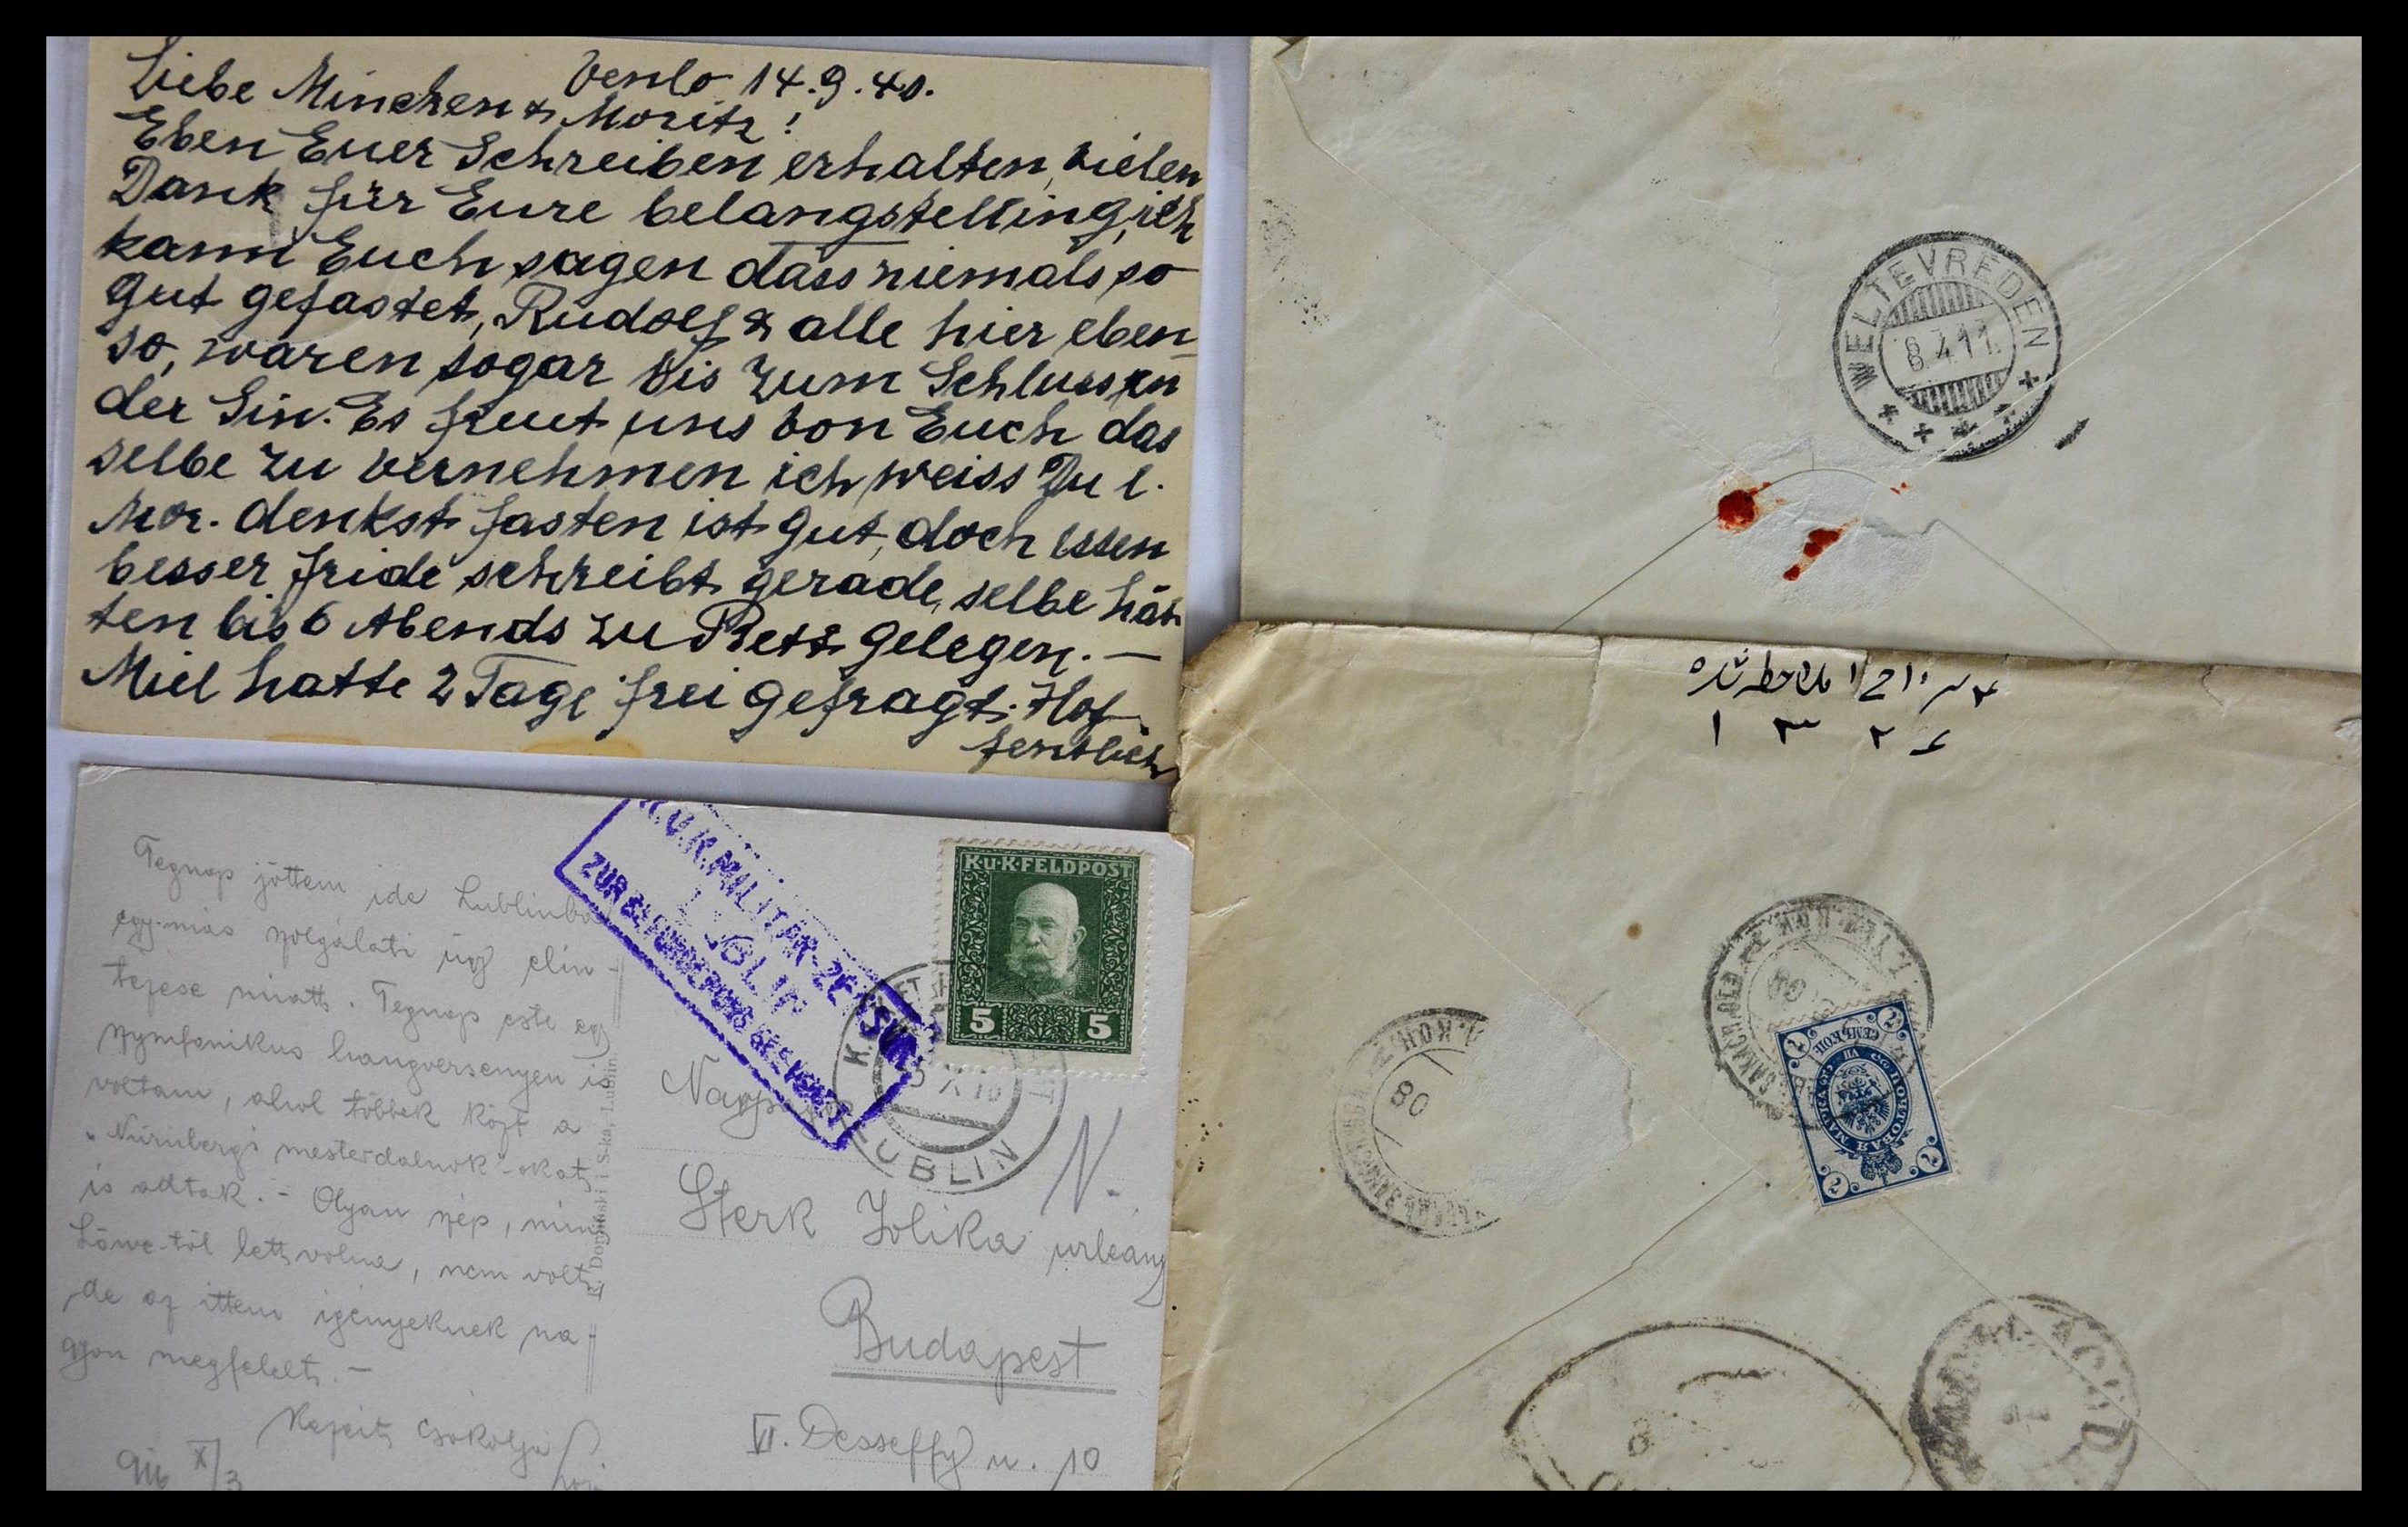 Venlo 14.9.40.
Liebe Minchen & Moritz!
Eben Euer Schreiben erhalten, vielen
Dank für Eure belangstelling, ich
kann Euch sagen dass niemals so
gut gefastet, Rudolf & alle hier eben
so, waren sogar bis zum Schluss in
der Sin. Es freut uns von Euch das
selbe zu vernehmen ich weiss Du l.
Mor. denkst fasten ist gut, doch essen
besser fride schreibt gerade, selbe hät
ten bis 6 Abends zu Bett gelegen. —
Miel hatte 2 Tage frei gefragt. Hof
fentlich
WELTEVREDEN
8.4.11.
ملاحظه شده
۱۳۲۶
Tegnap jöttem ide Lublinba
egy-más szolgálati ügy elin-
tézése miatt. Tegnap este egy
szymfonikus hangversenyen is
voltam, ahol többek közt a
"Nürnbergi mesterdalnok"-okat
is adtak. - Olyan szép, mint
Löwe-től lett volna, nem volt,
de az itteni igényeknek na-
gyon megfelelt. —
Kezeit csókolja
916 X/3
K.U.K. MILITÄR-ZENSUR
LUBLIN
ZUR BEFÖRDERUNG GEEIGNET
K·u·K·FELDPOST
5 5
LUBLIN
N.
Sterk Jolika urleány
Budapest
VI. Desseffy u. 10
ПОЧТОВАЯ МАРКА
СЕМЬ КОП.
7 7
7 7
08